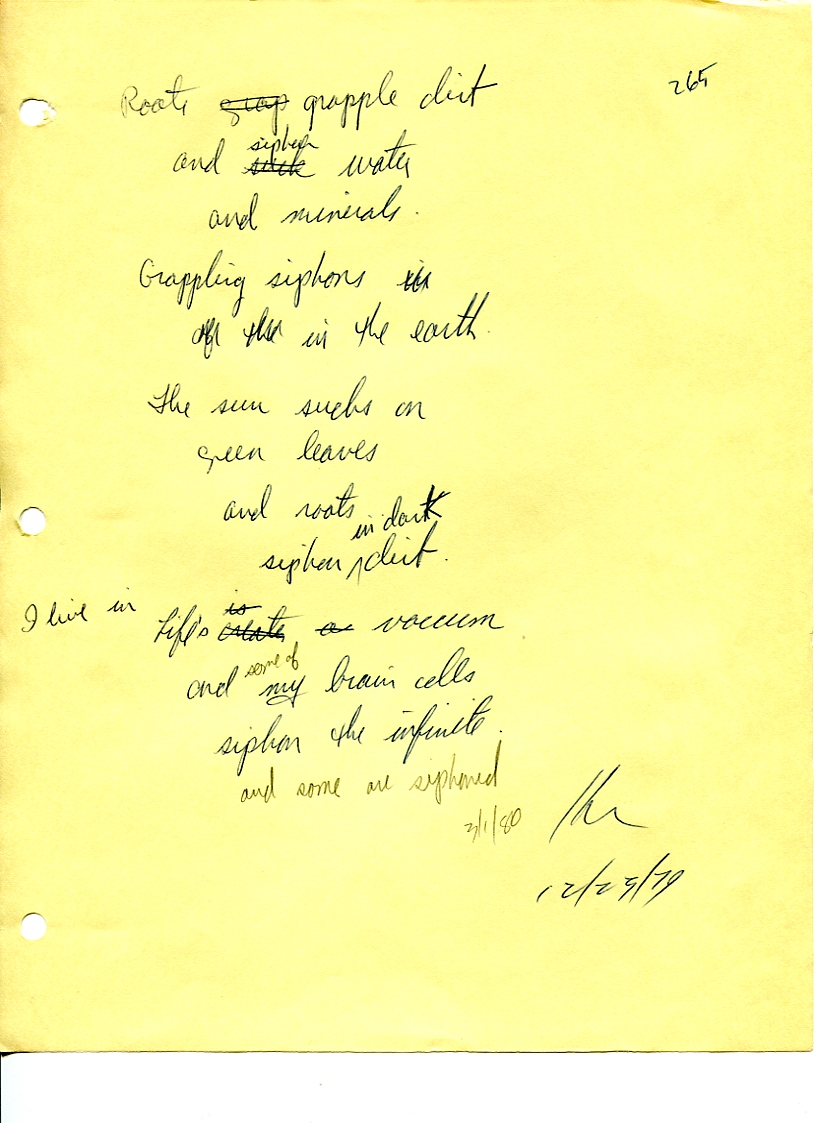 265
Roots grap grapple dirt
siphon
and suck water
and minerals.
Grappling siphons in
of the in the earth.
The sun sucks on
green leaves
and roots
in dark
siphon dirt.
I live in
is
Life's creates a vacuum
some of
and my brain cells
siphon the infinite.
and some are siphoned
3/1/80
12/25/79